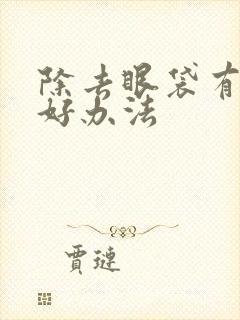 除去眼袋有
好办法
賈璉